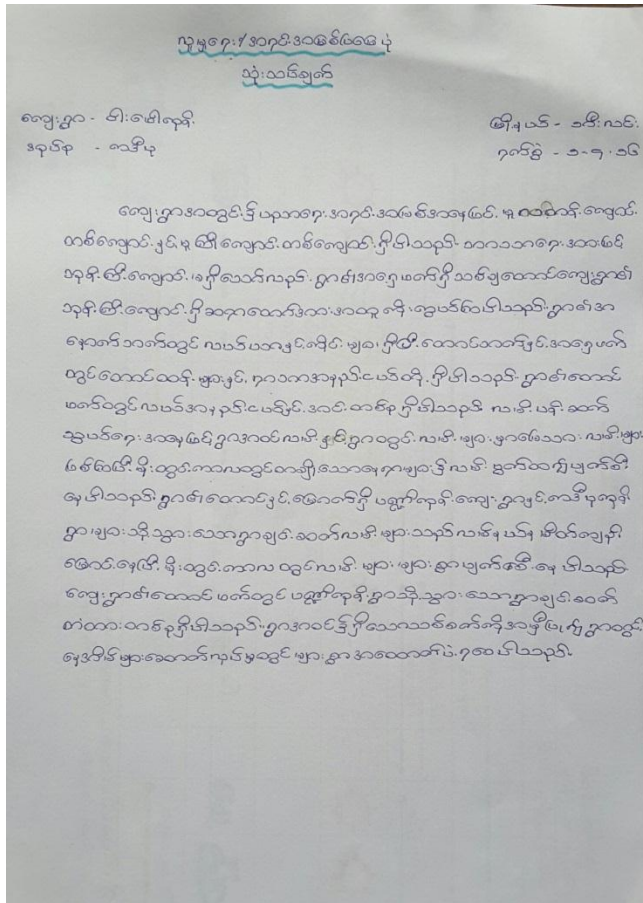 လူမှုရေး/အရင်းအမြစ်ပြမြေပုံ
သုံးသပ်ချက်
ကျေးရွာ - ပါးပေါကုန်း
မြို့နယ် - သီးလင်း
အုပ်စု - ကဒီမု
ရက်စွဲ - ၁-၅-၁၆
ကျေးရွာအတွင်း၌ ပညာရေးအရင်းအမြစ်အနေဖြင့် မူလတန်းကျောင်း
တစ်ကျောင်းနှင့် မူကြိုကျောင်း တစ်ကျောင်းရှိပါသည်။ ဘာသာရေးအားဖြင့်
ဘုန်းကြီးကျောင်း ရှိသော်လည်း ရွာ၏အရှေ့ဖက်ရှိသစ်ချတောင်ကျေးရွာ၏
ဘုန်းကြီးကျောင်းရှိဆရာတော်အား အထူးကိုးကွယ်ကြပါသည်။ ရွာ၏အ
နောက်ဘက်တွင် လယ်ယာနှင့်ကိုင်းများရှိပြီး တောင်ဘက်နှင့်အရှေ့ဖက်
တွင်တောင်တန်းများနှင့် ရာဘာအနည်းငယ်တို့ရှိပါသည်။ ရွာ၏တောင်
ဖက်တွင်လယ်အနည်းငယ်နှင့်အင်းတစ်ခုရှိပါသည်။ လမ်းပန်းဆက်
သွယ်ရေးအနေဖြင့်ရွာအဝင်လမ်းနှင့်ရွာတွင်းလမ်းများမှာမြေသားလမ်းများ
ဖြစ်ကြပြီး မိုးတွင်းကာလတွင်တချို့သောနေရာများ၌လမ်း ပျက်စီး
နေပါသည်။ ရွာ၏တောင်နှင့်မြောက်ရှိ ပဏ္ဏဲကုန်းကျေးရွာနှင့်ကဒီမုကုန်း
ရွာများသို့သွားသောရွာချင်းဆက်လမ်းများသည်လယ်နယ်နမိတ်ကျော်
မြောင်းနေပြီး မိုးတွင်းကာလတွင်လမ်းများများစွာပျက်စီးနေပါသည်။
ကျေးရွာ၏တောင်ဖက်တွင် ပဏ္ဏဲကုန်းရွာသို့သွားသောရွာချင်းဆက်
တံတားတစ်ခုရှိပါသည်။ ရွာအဝင်၌ရှိသောသစ်စက်ကိုအမှီပြု၍ရွာတွင်း
နေအိမ်များဆောက်လုပ်မှုတွင်များစွာအထောက်ပံ့ရစေပါသည်။